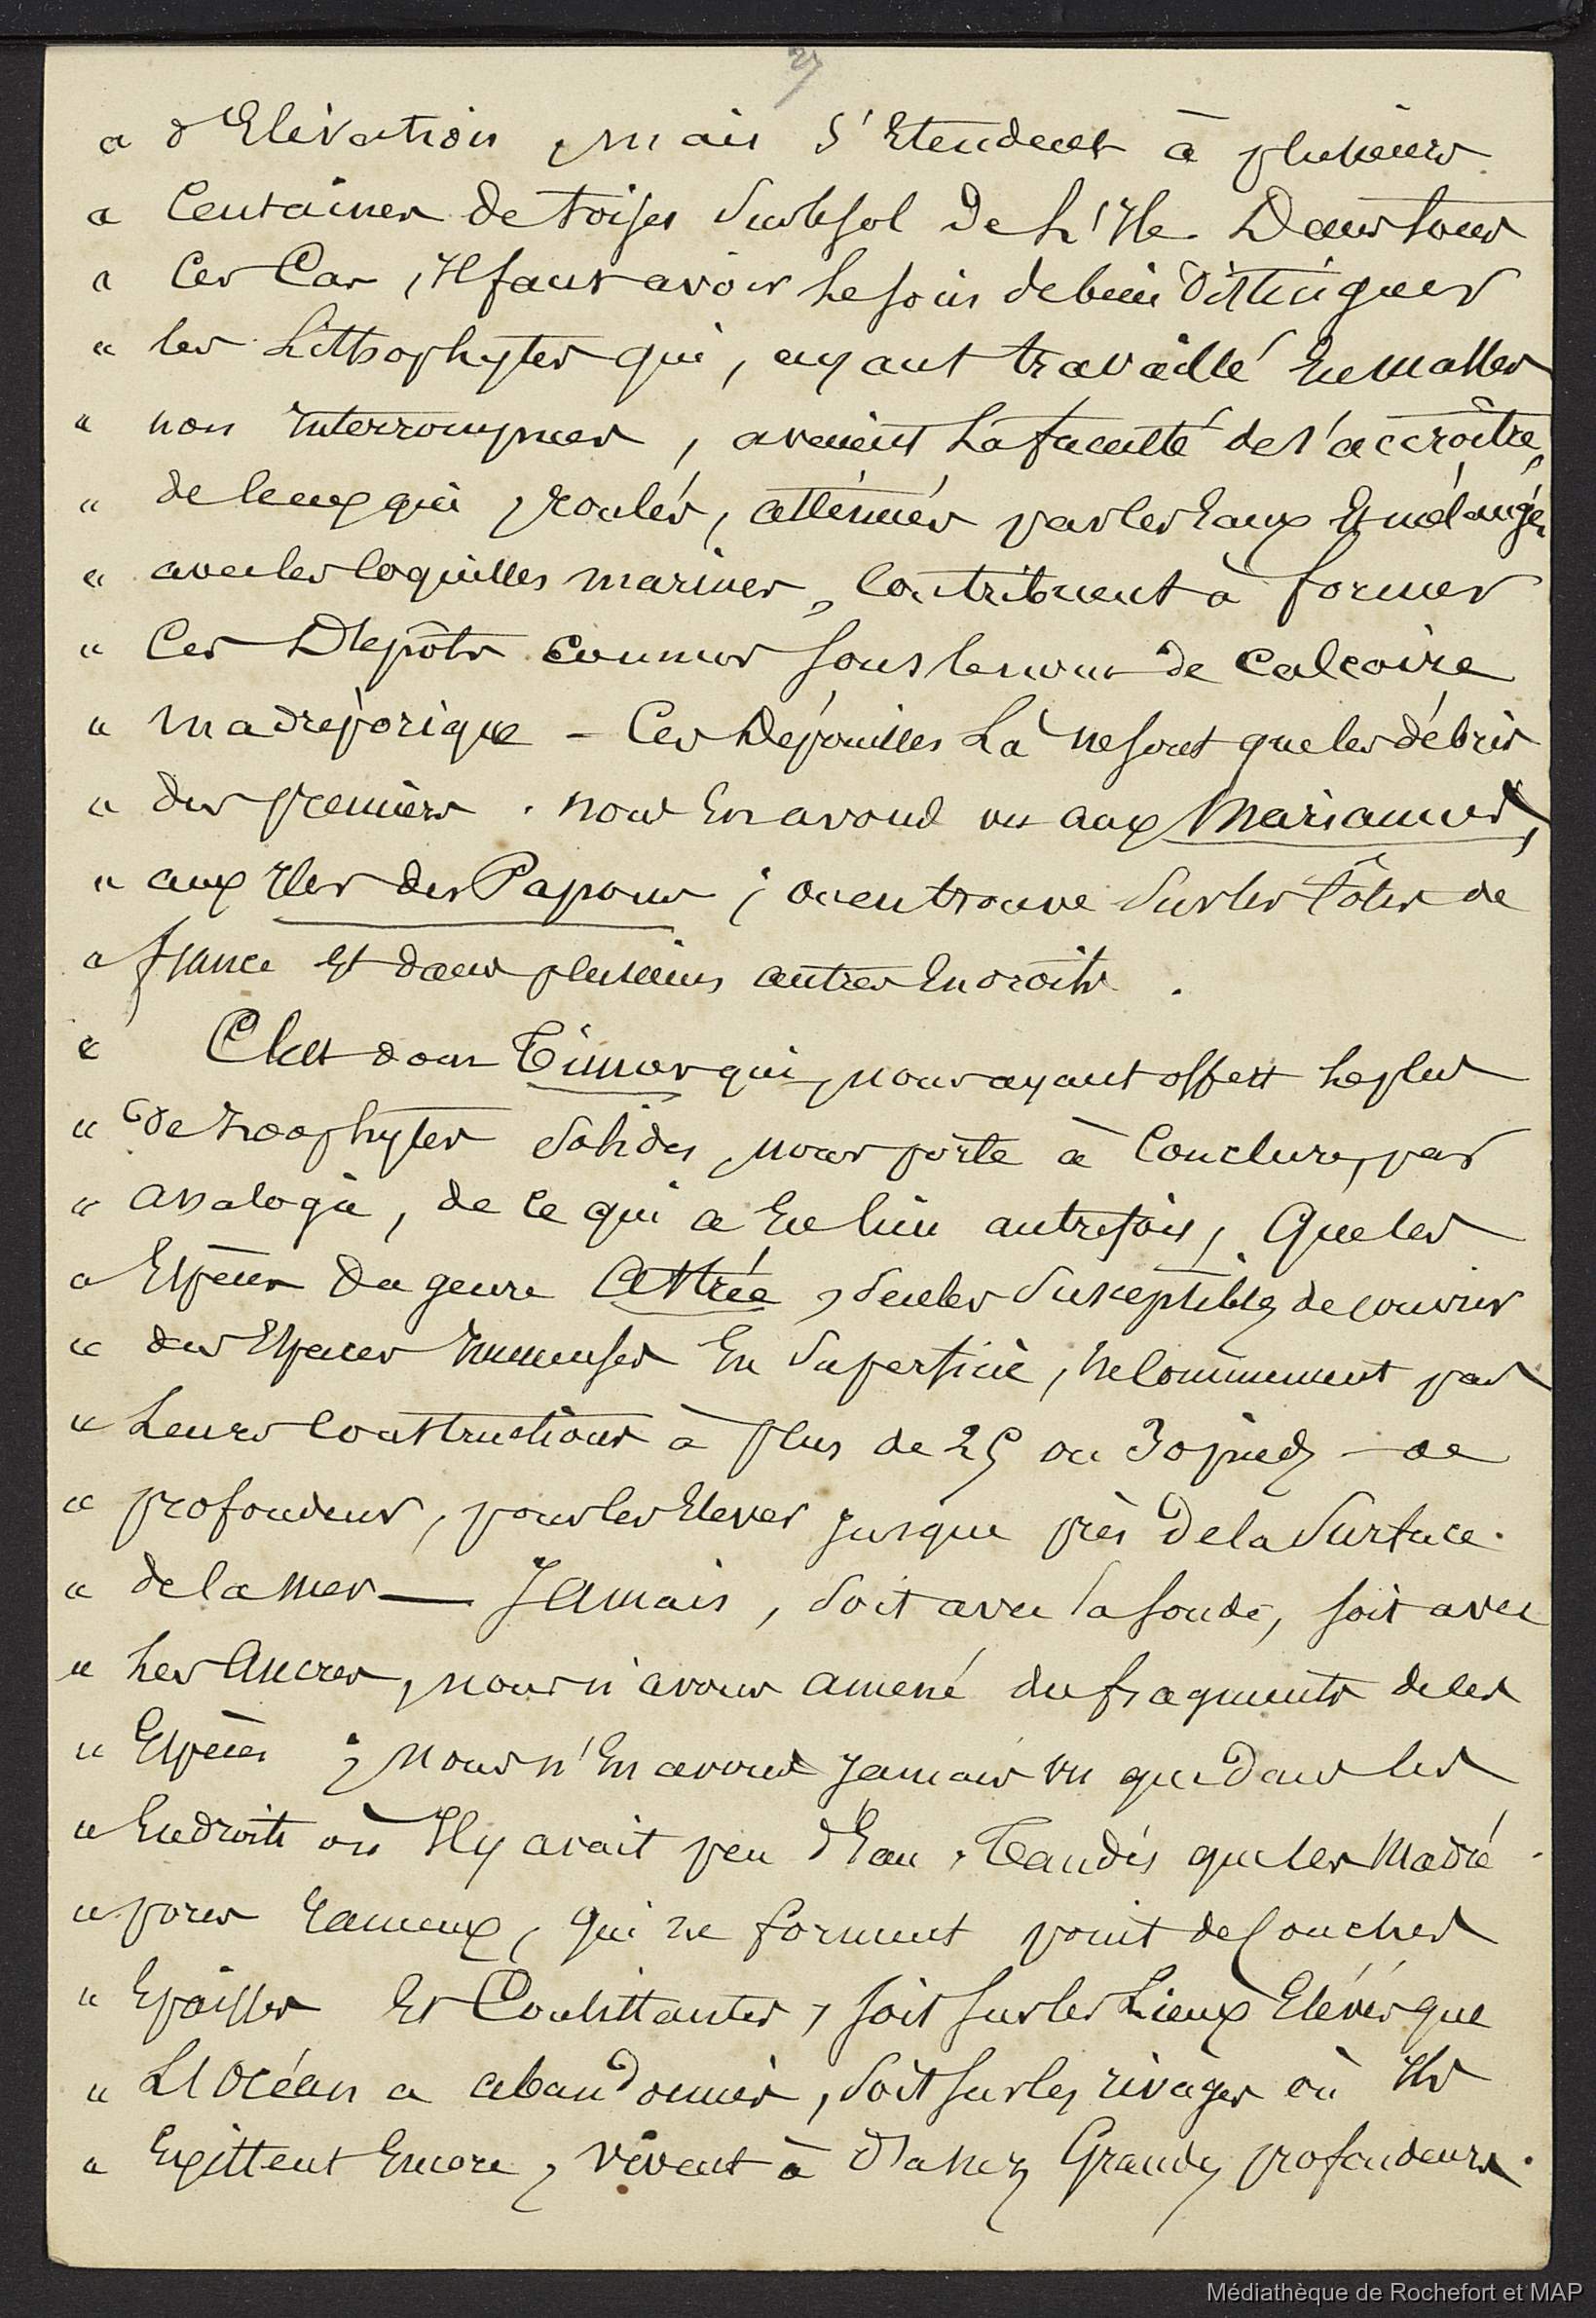 27
" d'Elévation, mais s'Etendent à plusieurs
" Centaines de toises sur le sol de L'Ile. Dans tous
" Ces Cas, Il faut avoir le soin de bien distinguer
" les Lithophytes qui, ayant travaillé En masses
" non Interrompues, avaient La faculté de s'accroître,
" de Ceux qui, roulés, atténués par les Eaux Et mélangés
" avec les Coquilles marines, Contribuent à former
" Ces Dépôts connus sous le nom de Calcaire
" Madréporique – Ces Dépouilles Là ne sont que les débris
" des premiers. nous En avons vu aux Mariannes,
" aux Iles des Papous ; on en trouve sur les Côtes de
" france Et dans plusieurs autres Endroits.
" C'est donc Timor qui, nous ayant offert le plus
" de Zoophytes solides, nous porte à Conclure, par
" analogie, de ce qui a Eu lieu autrefois, Que les
" Espèces du genre Astrée, seules susceptibles de couvrir
" des Espaces Immenses En superficie, ne Commencent pas
" Leurs Constructions à plus de 25 ou 30 pieds – de
" profondeur, pour les Elever Jusque près de la surface.
" de la mer — Jamais, soit avec la sonde, soit avec
" Les Ancres, nous n'avons amené des fragments de ces
" Espèces ; nous n'En avons Jamais vu que dans les
" Endroits où Il y avait peu d'Eau, Tandis que les Madré
" pores rameux, qui ne forment point de Couches
" Epaisses Et Consistantes, soit sur les Lieux Elévés que
" L'Océan a abandonnés, soit sur les rivages où Ils
" Existent Encore, vivent à d'assez Grandes profondeurs.
Médiathèque de Rochefort et MAP